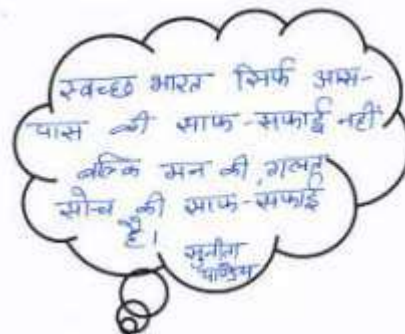 स्वच्छ भारत सिर्फ आस-
पास की साफ-सफाई नहीं
बल्कि मन की, गलत
सोच की साफ-सफाई
है।
सुनीता